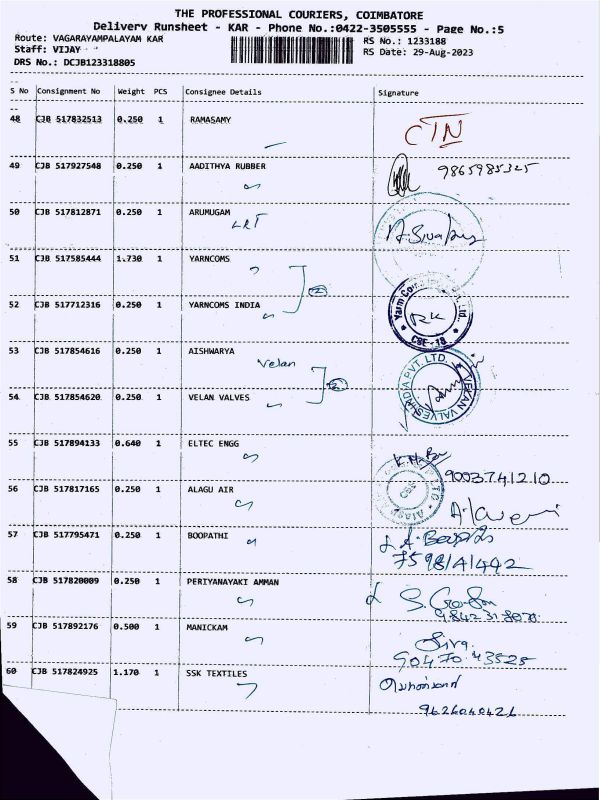 THE PROFESSIONAL COURIERS, COIMBATORE
Delivery Runsheet - KAR - Phone No.:0422-3505555 - Page No.:5
Route: VAGARAYAMPALAYAM KAR
RS No.: 1233188
Staff: VIJAY
RS Date: 29-Aug-2023
DRS No.: DCJB123318805
S No Consignment No Weight PCS Consignee Details Signature
48 CJB 517832513 0.250 1 RAMASAMY CTN
49 CJB 517927548 0.250 1 AADITHYA RUBBER 9865985325
50 CJB 517812871 0.250 1 ARUMUGAM
LRT
51 CJB 517585444 1.730 1 YARNCOMS
2
52 CJB 517712316 0.250 1 YARNCOMS INDIA RK
CBE-18
53 CJB 517854616 0.250 1 AISHWARYA
Velan
2
54 CJB 517854620 0.250 1 VELAN VALVES
55 CJB 517894133 0.640 1 ELTEC ENGG
9003741210
56 CJB 517817165 0.250 1 ALAGU AIR
57 CJB 517795471 0.250 1 BOOPATHI
58 CJB 517820009 0.250 1 PERIYANAYAKI AMMAN
59 CJB 517892176 0.500 1 MANICKAM Siva
90470 43525
60 CJB 517824925 1.170 1 SSK TEXTILES
9626040426